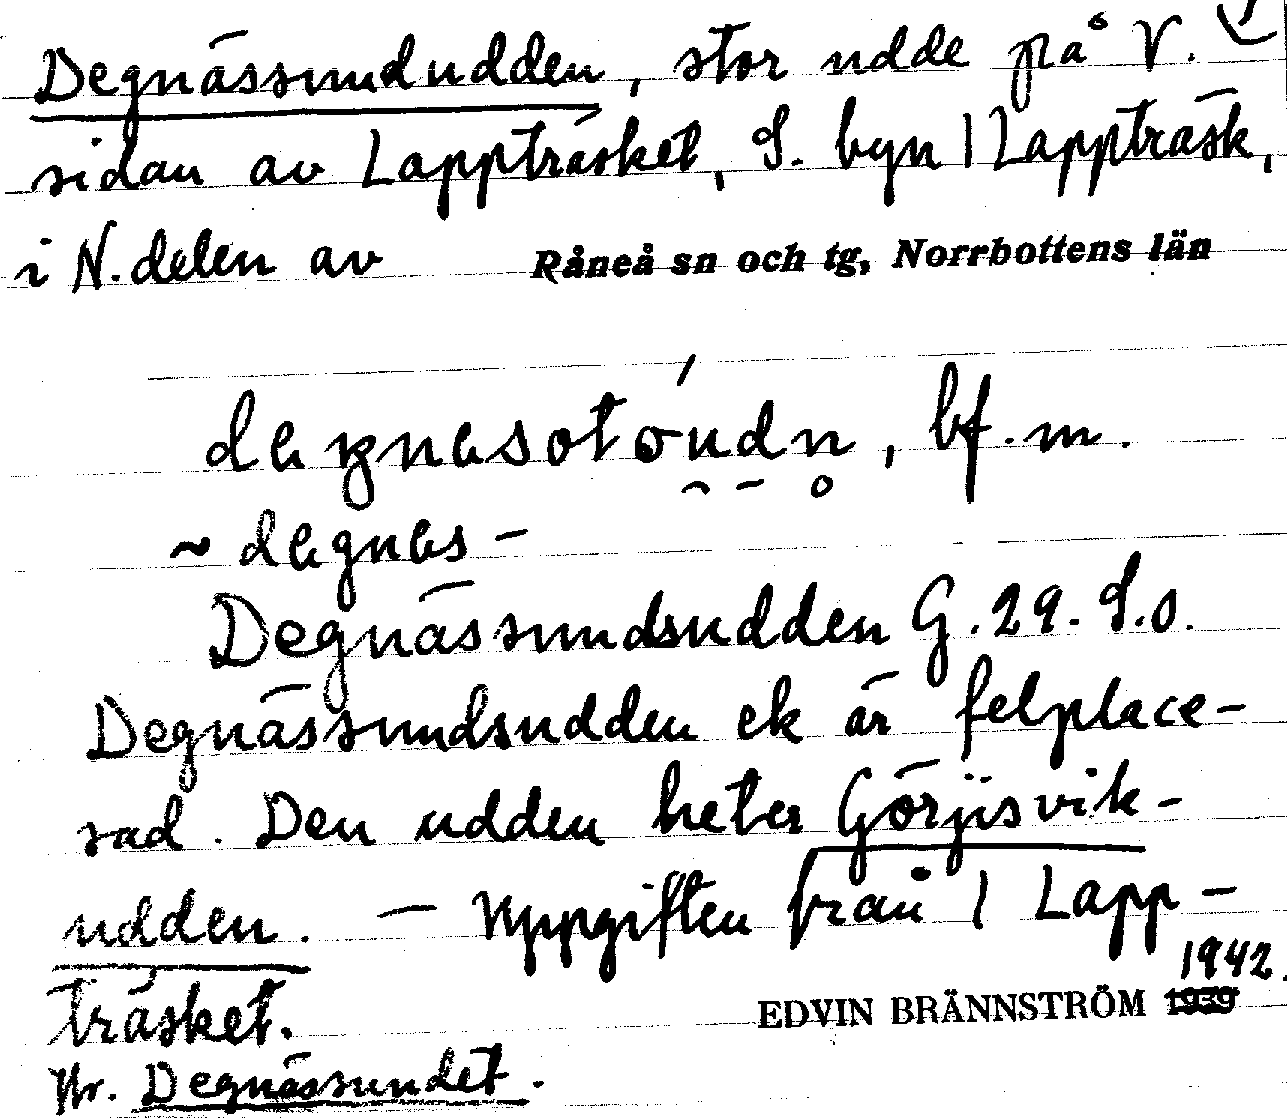 Degnässundudden, stor udde på V.
sidan av Lappträsket, S. byn 1 Lappträsk,
i N. delen av Råneå sn och tg, Norrbottens län
bf. m.
Degnässundsudden G. 29. S.o.
Degnässundsudden ek är felplace-
rad. Den udden heter Görjisvik-
udden. — Uppgiften från 1 Lapp-
träsket. EDVIN BRÄNNSTRÖM 1939 1942.
Hr. Degnässundet.